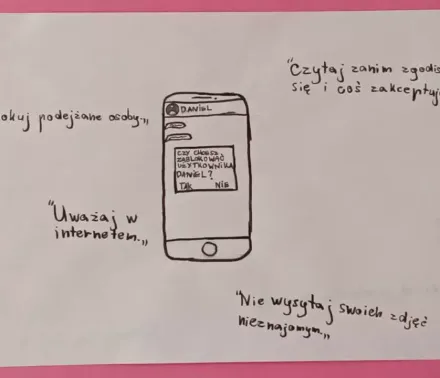 "Czytaj zanim
się i coś
podejżane osoby.„
DANIEL
CZY CHCESZ
ZABLOKOWAĆ
UŻYTKOWNIKA
DANIEL?
TAK NIE
"Uważaj w
internetem.„
"Nie wysyłaj swoich zdjęć
nieznajomym.„